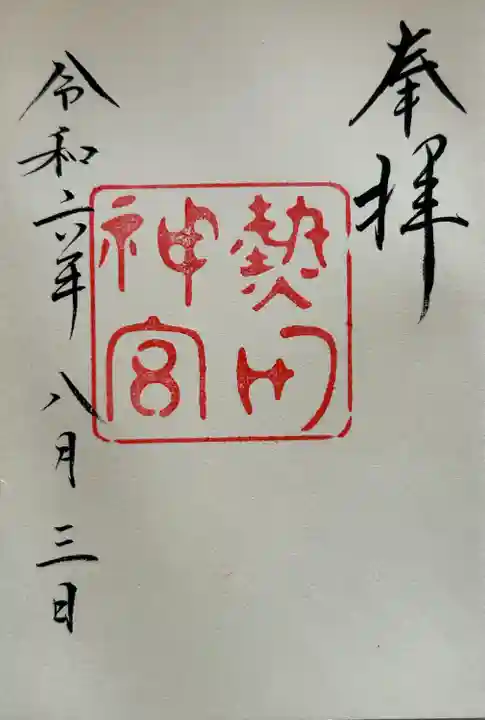 奉拝
熱田
神宮
令和六年八月三日